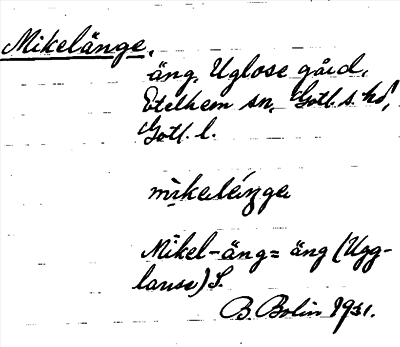 Mikelänge,
äng, Uglose gård,
Etelhem sn, Gotl. s. hd,
Gotl. l.
mìkelénge
Mikel-äng = äng (Ugg-
lause) S.
B. Bolin 1931.